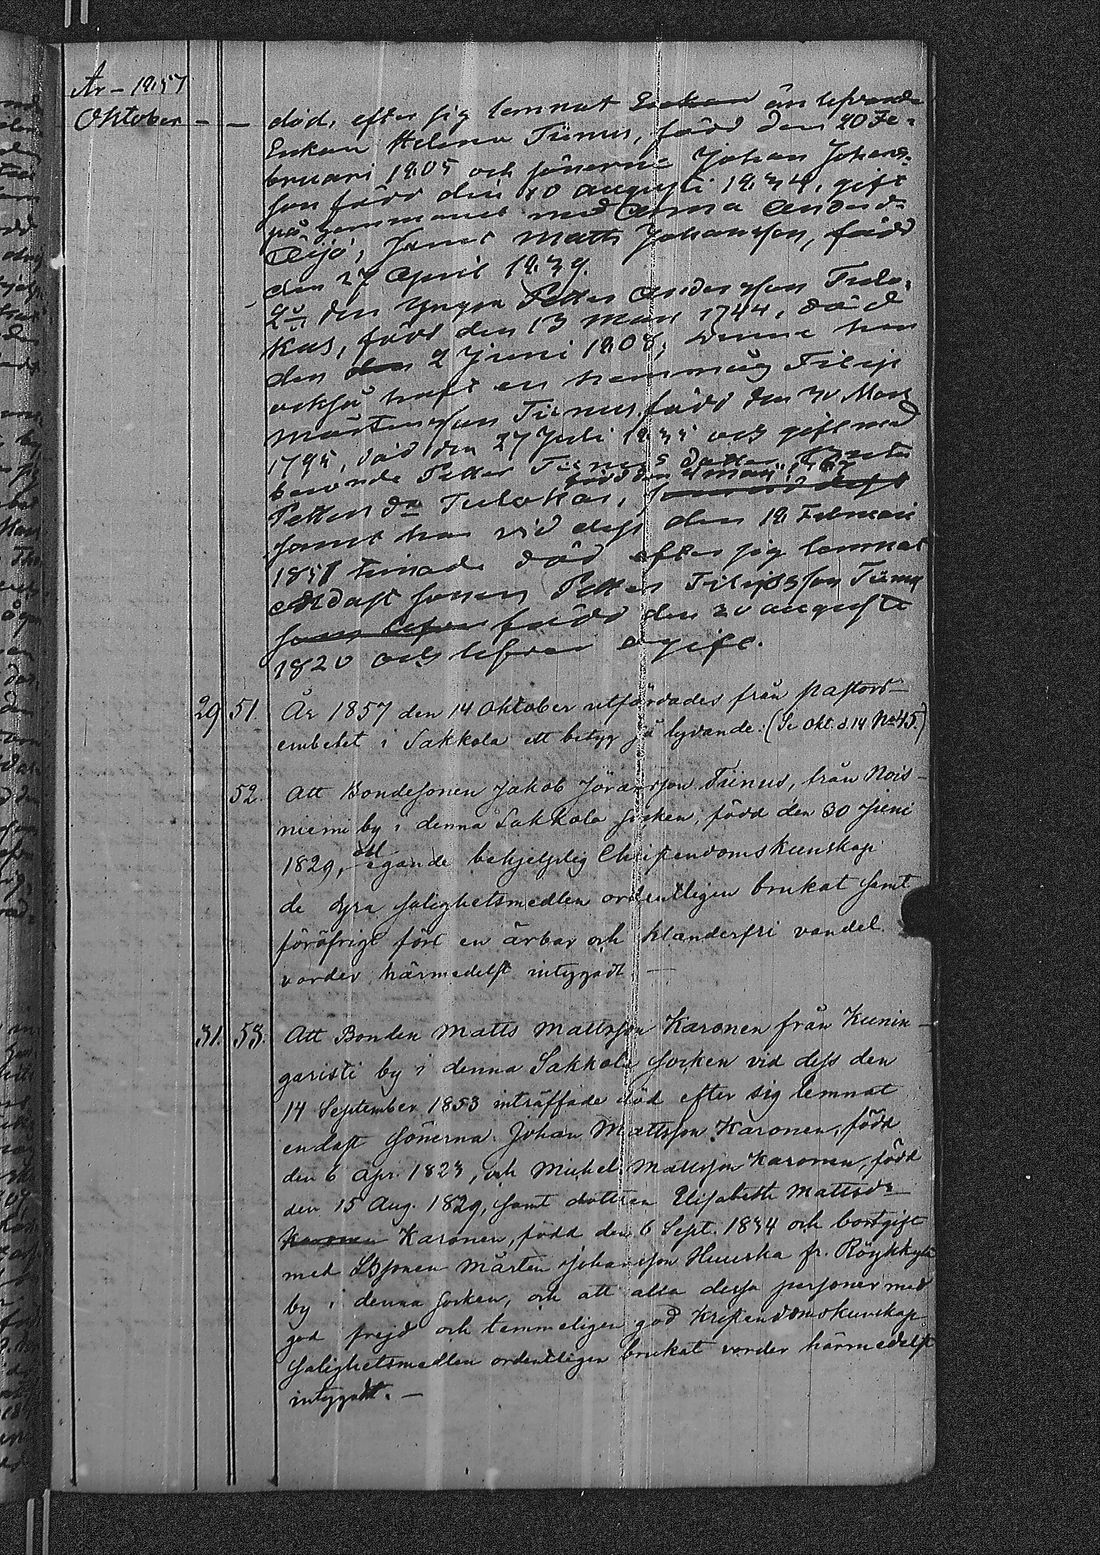 År – 1857
Oktober – – död, efter sig lemnat Enkan än lefvande
Enkan Helena Tiinus, född den 20 Fe-
bruari 1805 och sönerna Johan Johans-
son född den 10 augusti 1834, gift
på hemmanet med Anna Anders
Äijö, Samt Matts Johansson, född
den 27 April 1839.
2:o den yngre Petter Andersson Tulo-
kas, född den 13 Mars 1744, död
den den 2 Juni 1808; Denne har
också haft en hemmåg Filip
Mårtensson Tiinus född den 30 Mars
1795, död den 27 Juli 1835 och gift med
berörde Petter Tiinus dotter
född den
Petters dr Tulokas,
samt har vid dess den 18 Februari
1851 timade död efter sig lemnat
endast sonen Petter Filipsson Tiinus
som lefver född den 20 augusti
1820 och lefver ogift.
29. 51. År 1857 den 14 Oktober utfärdades från pastors-
embetet i Sakkola ett betyg så lydande. (Se Okt. d. 14 No 45.)
52. Att Bondesonen Jakob Jöransson Tiinus, från Nois-
niemi by i denna Sakkola socken, född den 30 Juni
1829, egande behjelplig Christendomskunskap
de dyra salighetsmedlen ordentligen brukat samt
föröfrigt fört en ärbar och klanderfri vandel
varder härmedelst intygadt. —
31. 53. Att Bonden Matts Mattsson Karonen från Kunin-
garisti by i denna Sakkola socken vid dess den
14 September 1853 inträffade död efter sig lemnat
endast sönerna Johan Mattsson Karonen, född
den 6 Apr. 1823, och Michel Mattsson Karonen, född
den 15 Aug. 1829, samt dottren Elisabeth Mattsdr
Karonen, född den 6 Sept. 1834 och bortgift
med Bsonen Mårten Johansson Huuska fr. Röykkylä
by i denna socken, och att alla dessa personer med
god frejd och temmeligen god Kristendomskunskap
salighetsmedlen ordentligen brukat varder härmedelst
intygadt. —